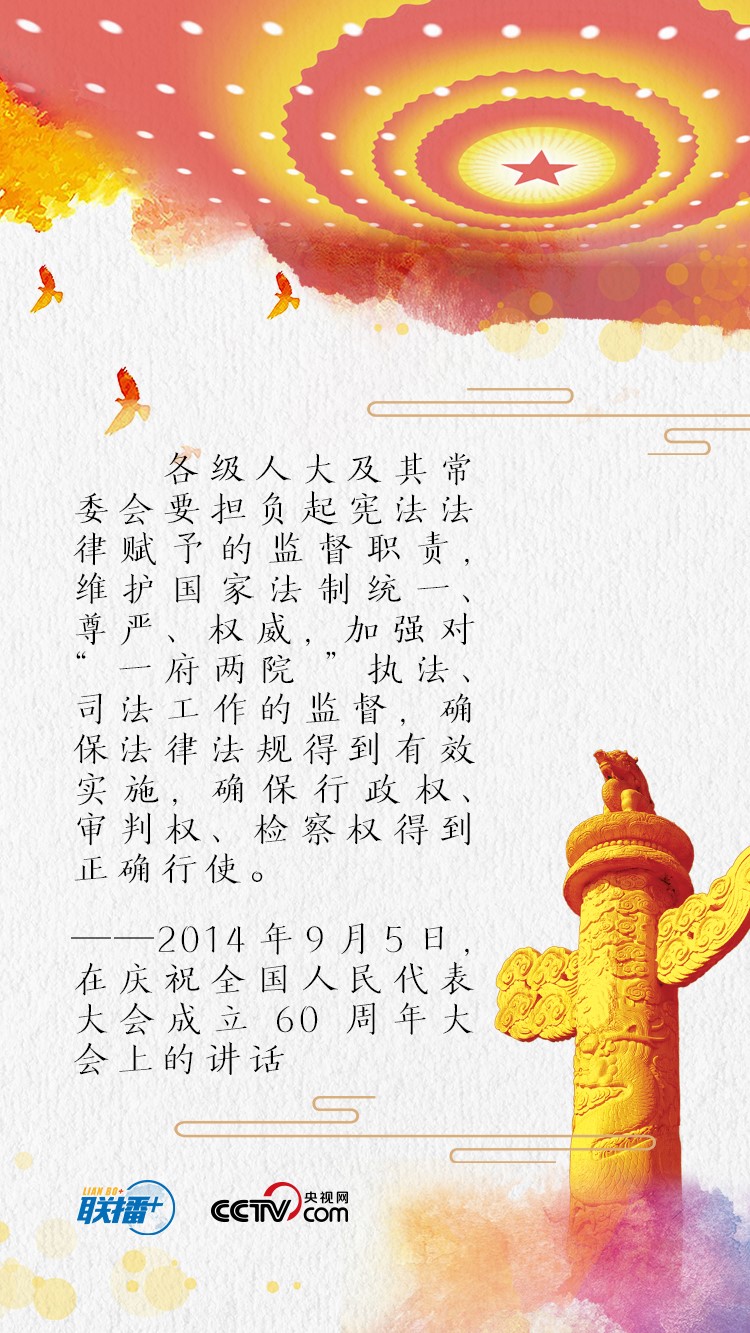 各级人大及其常
委会要担负起宪法法
律赋予的监督职责，
维护国家法制统一、
尊严、权威，加强对
“一府两院”执法、
司法工作的监督，确
保法律法规得到有效
实施，确保行政权、
审判权、检察权得到
正确行使。
——2014年9月5日，
在庆祝全国人民代表
大会成立60周年大
会上的讲话
LIAN BO+
联播+
CCTV 央视网
.com